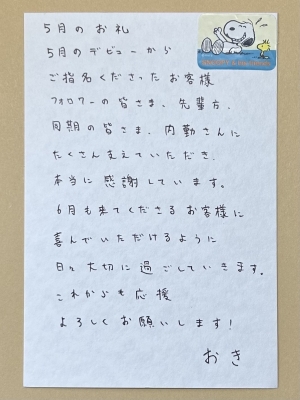 5月のお礼
5月のデビューから
ご指名くださったお客様
フォロワーの皆さま、先輩方、
同期の皆さま、内勤さんに
たくさん支えていただき、
本当に感謝しています。
6月も来てくださるお客様に
喜んでいただけるように
日々大切に過ごしていきます。
これからも応援
よろしくお願いします!
おき